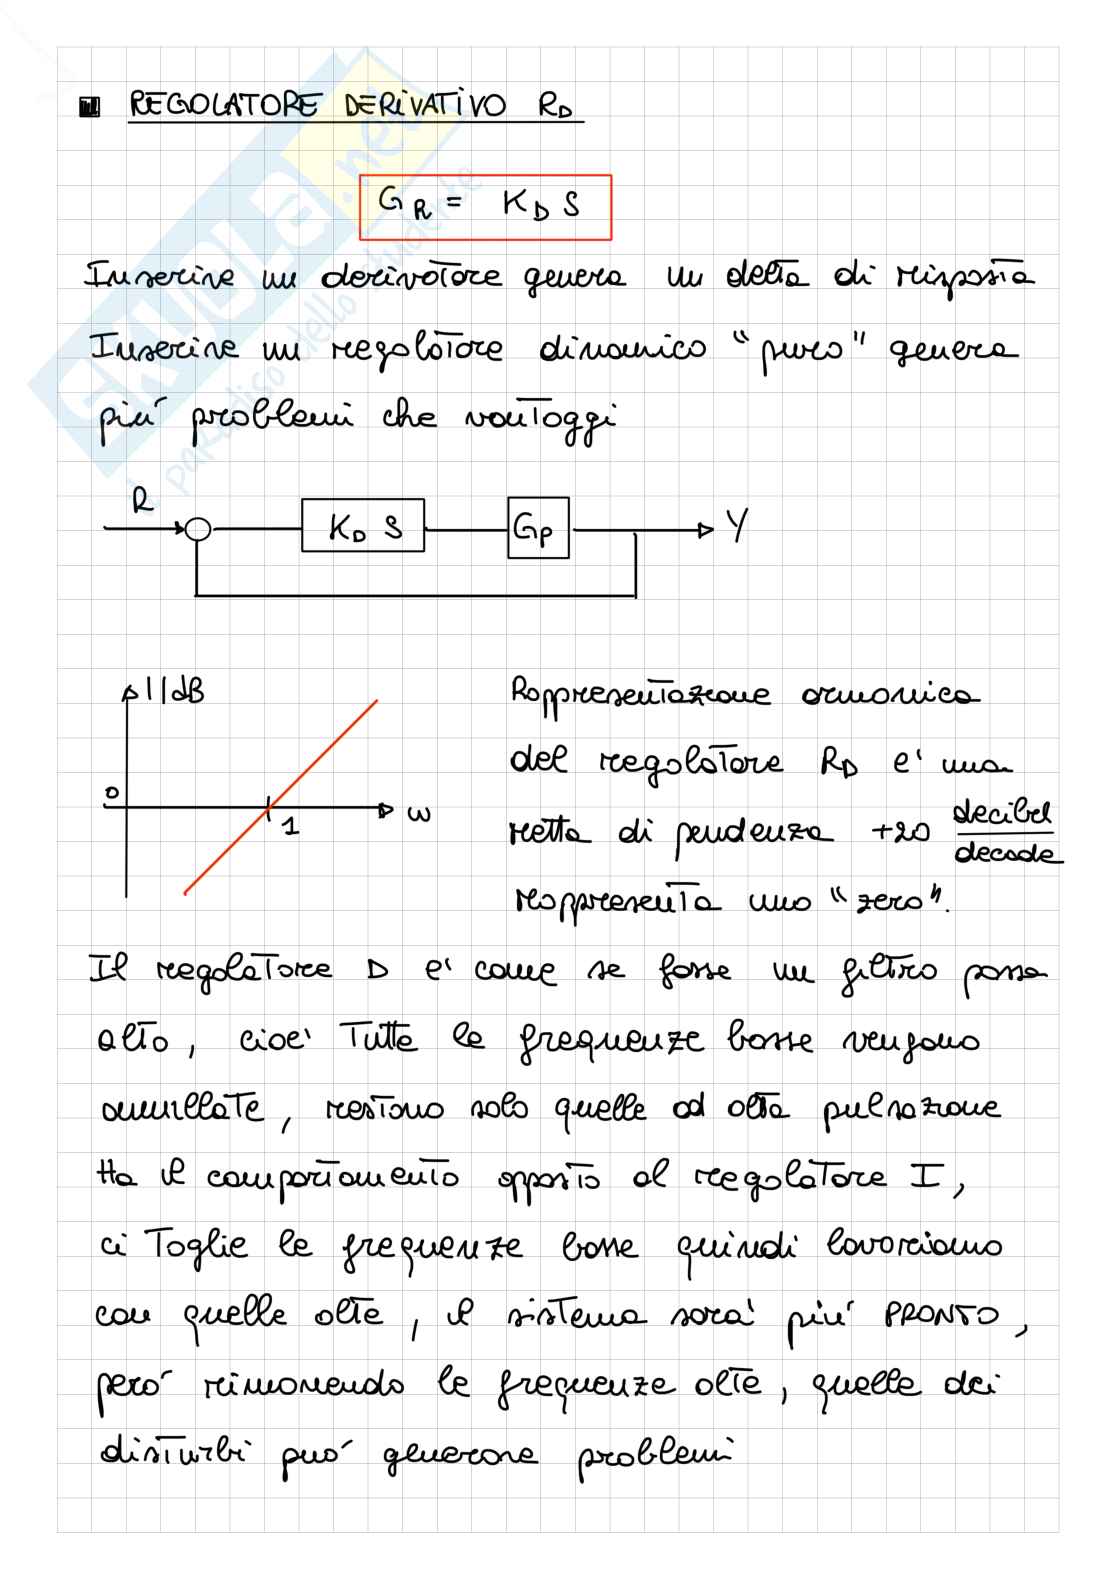 REGOLATORE DERIVATIVO RD
GR = KD S
Inserire un derivatore genera un delta di risposta
Inserire un regolatore dinamico "puro" genera
piú problemi che vantaggi
R
KD S
GP
Y
||dB
0
1
ω
Rappresentazione armonica
del regolatore RD e' una
retta di pendenza +20 decibel/decade
rappresenta uno "zero".
Il regolatore D e' come se fosse un filtro passa
alto, cioe' Tutte le frequenze basse vengono
annullate, restano solo quelle ad alta pulsazione
Ha il comportamento opposto al regolatore I,
ci Toglie le frequenze basse quindi lavoriamo
con quelle alte, il sistema sara' piú PRONTO,
peró rimanendo le frequenze alte, quelle dei
disturbi puó generare problemi
SKUOLA.net
il paradiso dello studente